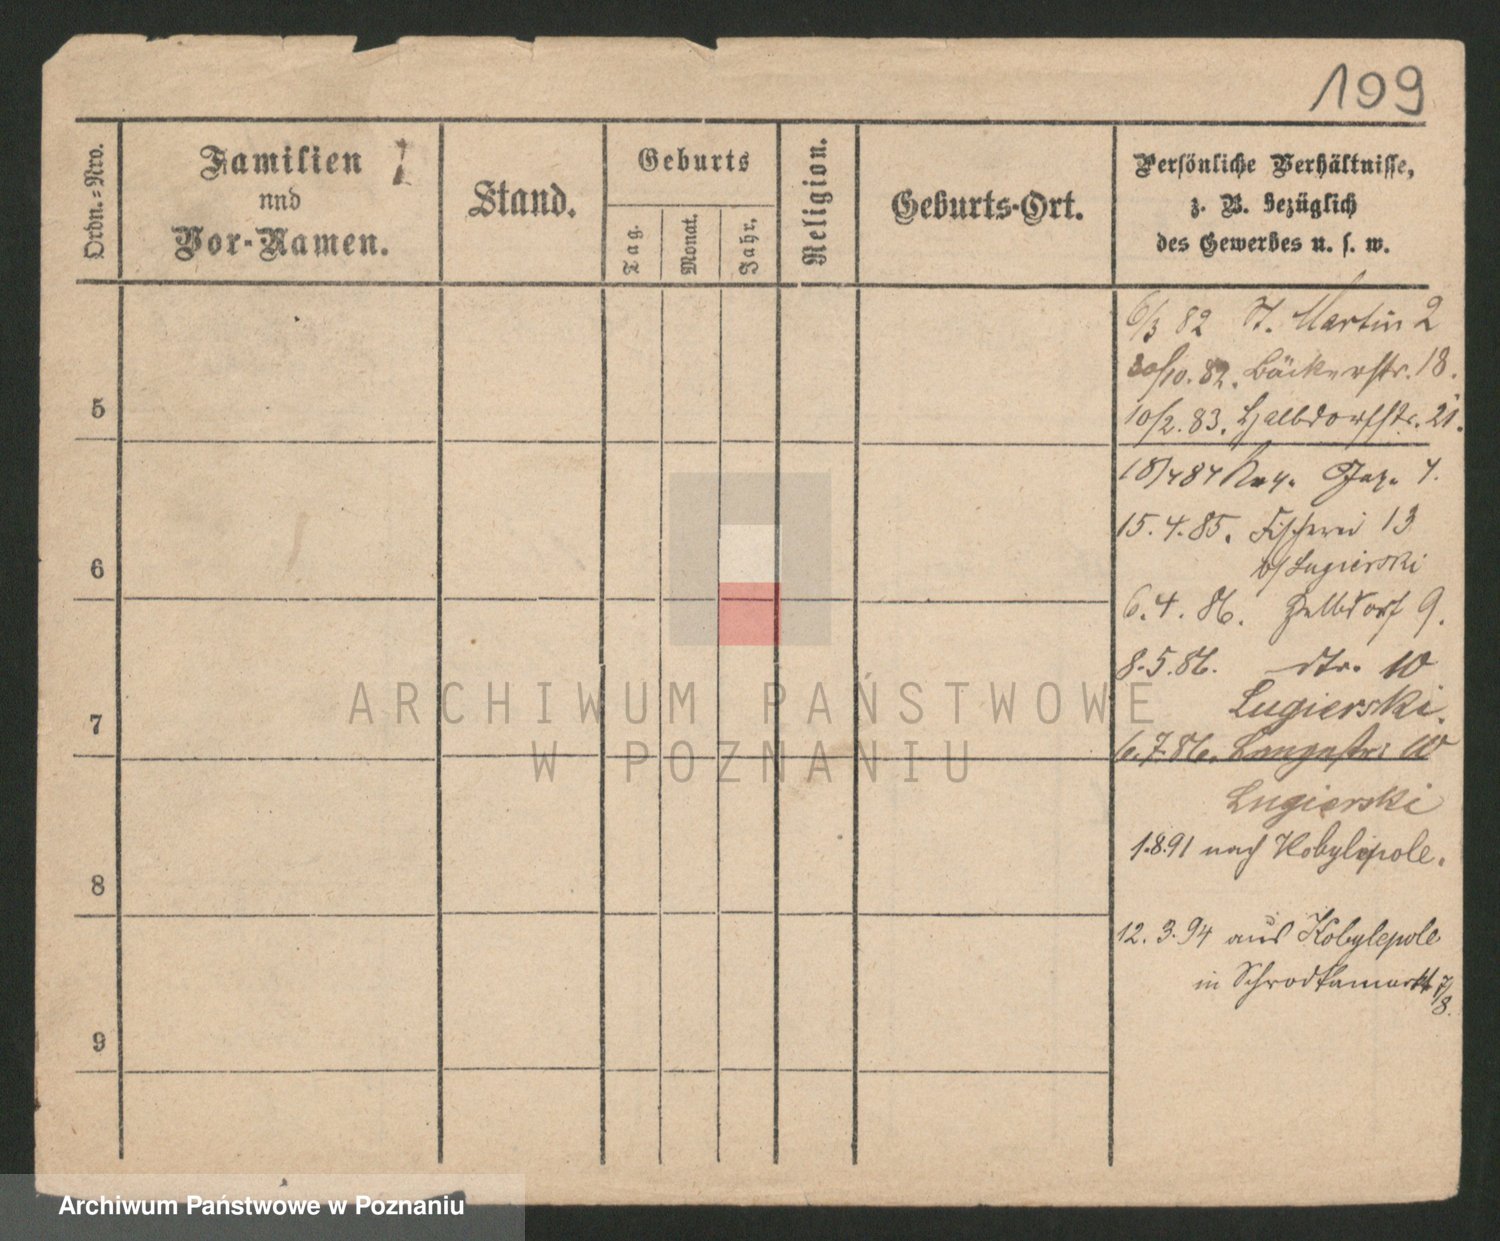 199
Ordn.-Nro.
Familien
und
Vor-Namen.
Stand.
Geburts
Tag.
Monat.
Jahr.
Religion.
Geburts-Ort.
Persönliche Verhältnisse,
z. B. bezüglich
des Gewerbes u. s. w.
6/3 82 St. Martin 2
30/10. 82. Bäckerstr. 18.
5
10/2. 83. Halbdorfstr. 21.
18/4 84
15. 4. 85. Fischerei 13
b/Lugierski
6
6. 4. 86. Halbdorf 9.
8. 5. 86. dtr. 10
Lugierski.
7
6. 7. 86. Langestr. 10
Lugierski
1.8.91 nach Kobylepole.
8
12. 3. 94 aus Kobylepole
in Schrodkamarkt 7/8.
9
ARCHIWUM PAŃSTWOWE
W POZNANIU
Archiwum Państwowe w Poznaniu